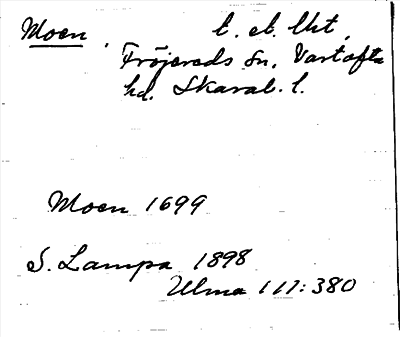 Moen, t. el. lht,
Fröjereds Sn, Vartofta
hd. Skarab. l.
Moen 1699
S. Lampa 1898
Ulma 117:380